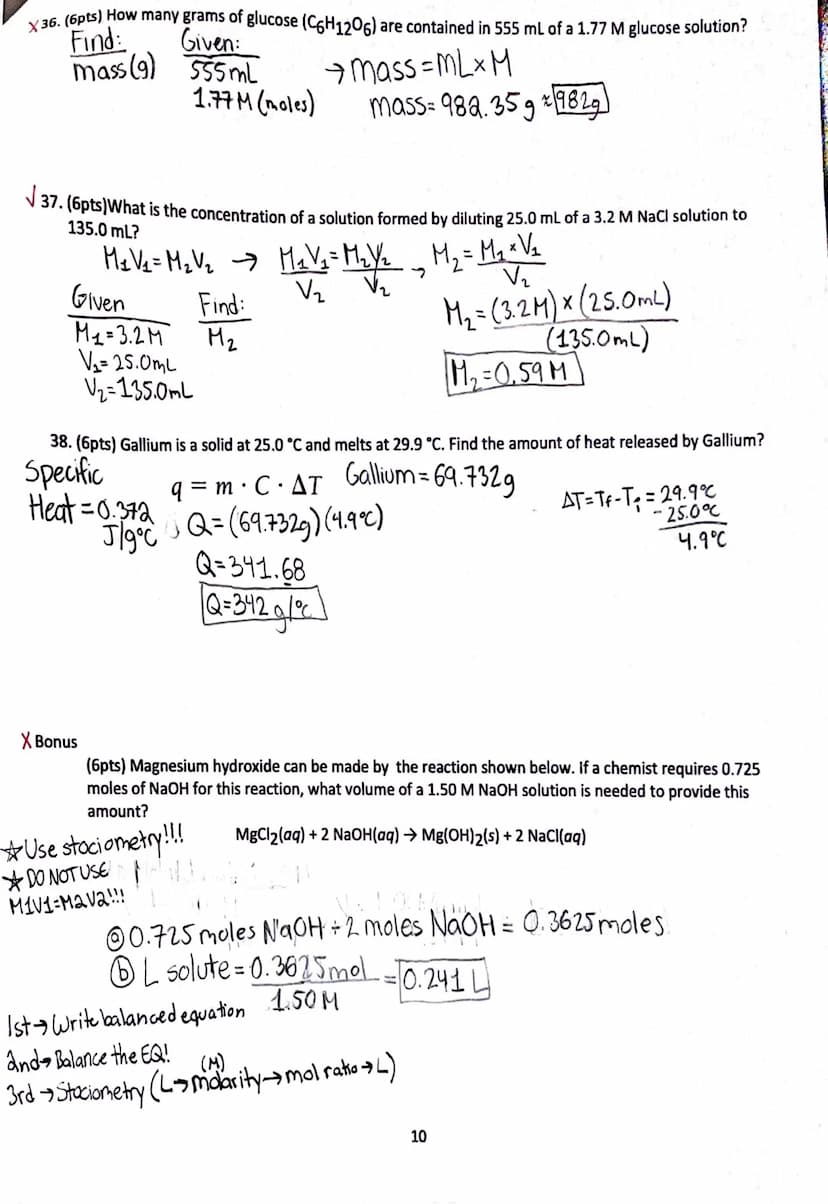 X 36. (6pts) How many grams of glucose (C6H12O6) are contained in 555 mL of a 1.77 M glucose solution?
Find: Given:
mass (g) 555mL → mass = mL x M
1.77 M (moles) mass = 982.35 g ≈ 982g
√ 37. (6pts)What is the concentration of a solution formed by diluting 25.0 mL of a 3.2 M NaCl solution to
135.0 mL?
M1V1 = M2V2 → M1V1 = M2V2 → M2 = M1 x V1
V2 V2 V2
Given Find: M2 = (3.2M) x (25.0mL)
M1 = 3.2 M M2 (135.0mL)
V1 = 25.0mL M2 = 0.59 M
V2 = 135.0mL
38. (6pts) Gallium is a solid at 25.0 °C and melts at 29.9 °C. Find the amount of heat released by Gallium?
Specific q = m · C · ΔT Gallium = 69.732g ΔT = Tf - Ti = 29.9°C
Heat = 0.372 Q = (69.732g)(4.9°C) - 25.0°C
J/g°C Q = 341.68 4.9°C
Q = 342 g/°C
X Bonus
(6pts) Magnesium hydroxide can be made by the reaction shown below. If a chemist requires 0.725
moles of NaOH for this reaction, what volume of a 1.50 M NaOH solution is needed to provide this
amount?
☆ Use stociometry!!! MgCl2(aq) + 2 NaOH(aq) → Mg(OH)2(s) + 2 NaCl(aq)
☆ DO NOT USE
M1V1=M2V2!!!
ⓐ 0.725 moles NaOH ÷ 2 moles NaOH = 0.3625 moles
ⓑ L solute = 0.3625 mol = 0.241 L
1.50 M
1st → Write balanced equation
2nd → Balance the EQ!
(M)
3rd → Stociometry (L → molarity → mol ratio → L)
10